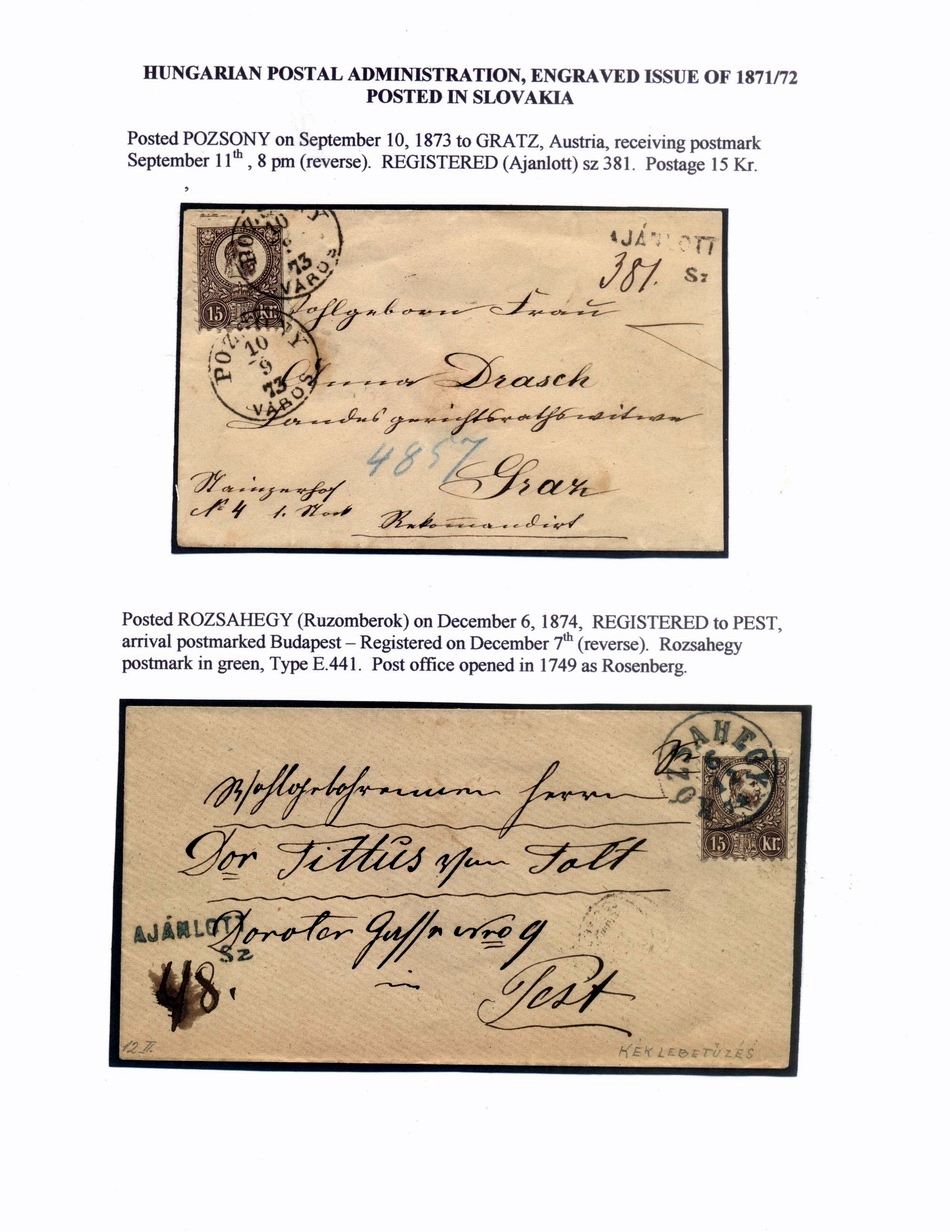 HUNGARIAN POSTAL ADMINISTRATION, ENGRAVED ISSUE OF 1871/72
POSTED IN SLOVAKIA
Posted POZSONY on September 10, 1873 to GRATZ, Austria, receiving postmark
September 11th , 8 pm (reverse). REGISTERED (Ajanlott) sz 381. Postage 15 Kr.
,
POZSONY
10
9
73
VÁROS
15 Kr.
AJÁNLOTT
Sz
381.
Wohlgeborn Frau
POZSONY
10
9
73
VÁROS
Anna Drasch
Landesgerichtsrathswitwe
4857
Graz
Stainzerhof
No 4 1. Stock
Rekomandirt
Posted ROZSAHEGY (Ruzomberok) on December 6, 1874, REGISTERED to PEST,
arrival postmarked Budapest – Registered on December 7th (reverse). Rozsahegy
postmark in green, Type E.441. Post office opened in 1749 as Rosenberg.
ROZSAHEGY
15 Kr.
Wohlgebohrennen Herrn
Dor Tittus von Tolt
AJÁNLOTT
Sz
Doroter Gasse Nro 9
48.
in
Pest
12 II.
KÉK LEBETŰZÉS